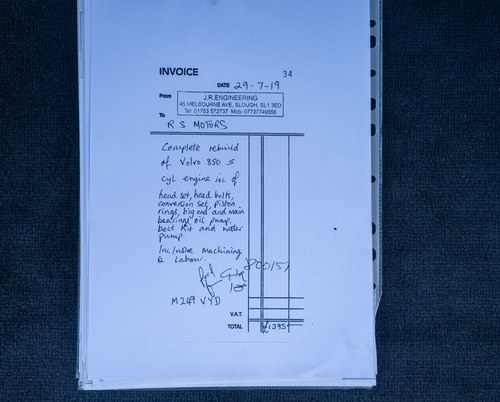 INVOICE 34
DATE 29-7-19
From J.R. ENGINEERING
45 MELBOURNE AVE, SLOUGH, SL1 3ED
Tel: 01753 572737 Mob: 07737749556
To
R S MOTORS
Complete rebuild
of Volvo 850 5
cyl engine inc of
head set, head bolts,
conversion set, piston
rings, big end and main
bearings, oil pump,
belt kit and water
pump.
Inclusive Machining
& Labour.
800151
M249 VYD
V.A.T.
TOTAL £1395